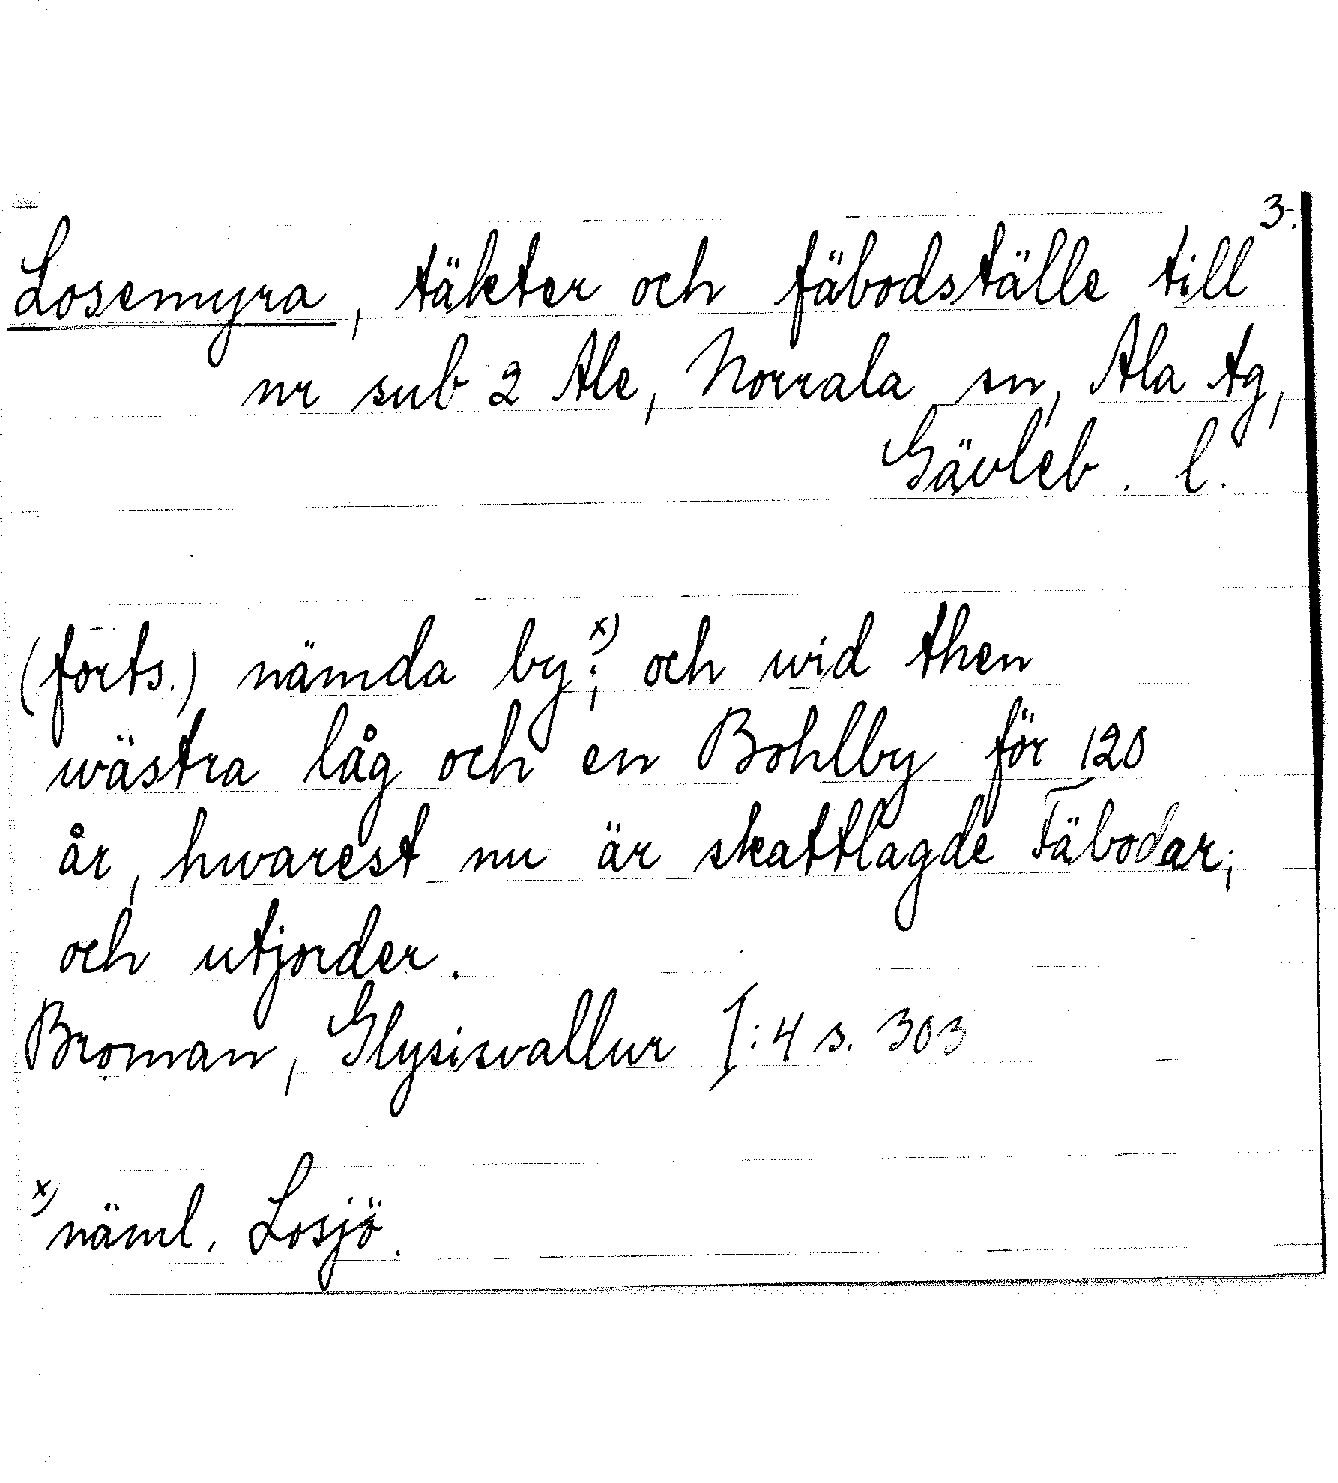 3.
Losemyra, täkter och fäbodställe till
nr sub 2 Ale, Norrala sn, Ala tg,
Gävleb. l.
(forts.) nämda by;x) och wid then
wästra låg och en Bohlby för 120
år, hwarest nu är skattlagde Fäbodar;
och utjorder.
Broman, Glysisvallur I:4 s. 303
x) näml. Losjö.